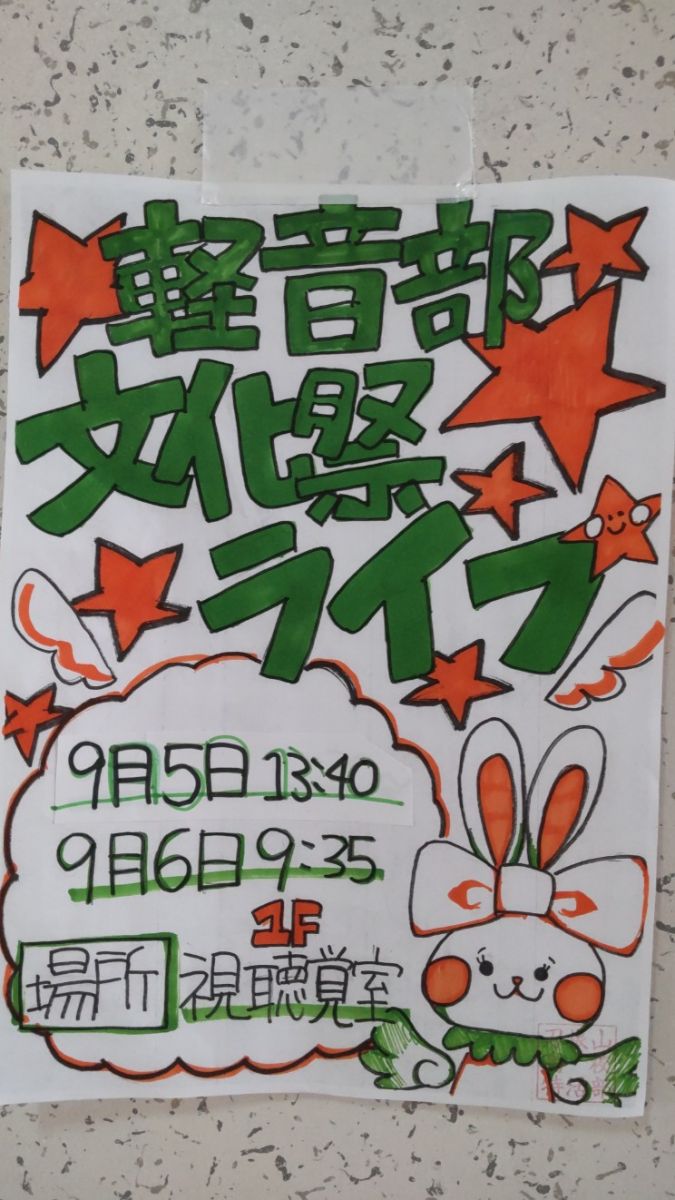 軽音部
文化祭
ライブ
9月5日 13:40
9月6日 9:35
1F
場所 視聴覚室